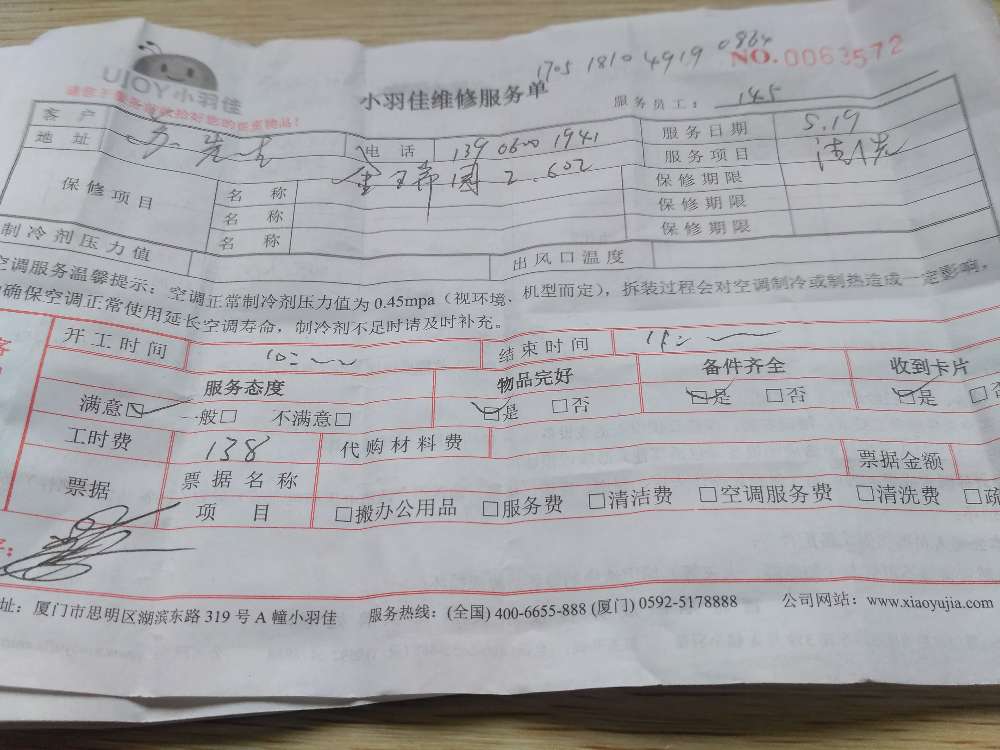 UJOY小羽佳
1705 1810 4919 0864
NO.0063572
小羽佳维修服务单
服务员工: 145
客户 先生 电话 139 0600 1941 服务日期 5.19
地址 2.602 服务项目 清洗
保修项目 名称 保修期限
名称 保修期限
名称 保修期限
制冷剂压力值 出风口温度
空调服务温馨提示:空调正常制冷剂压力值为0.45mpa(视环境、机型而定),拆装过程会对空调制冷或制热造成一定影响。
确保空调正常使用延长空调寿命,制冷剂不足时请及时补充。
开工时间 10: 结束时间
服务态度 物品完好 备件齐全 收到卡片
满意☑ 一般□ 不满意□ ☑是 □否 ☑是 □否 ☑是 □否
工时费 138 代购材料费
票据 票据名称 票据金额
项目 □搬办公用品 □服务费 □清洁费 □空调服务费 □清洗费 □疏
址:厦门市思明区湖滨东路319号A幢小羽佳 服务热线:(全国) 400-6655-888 (厦门) 0592-5178888 公司网站:www.xiaoyujia.com